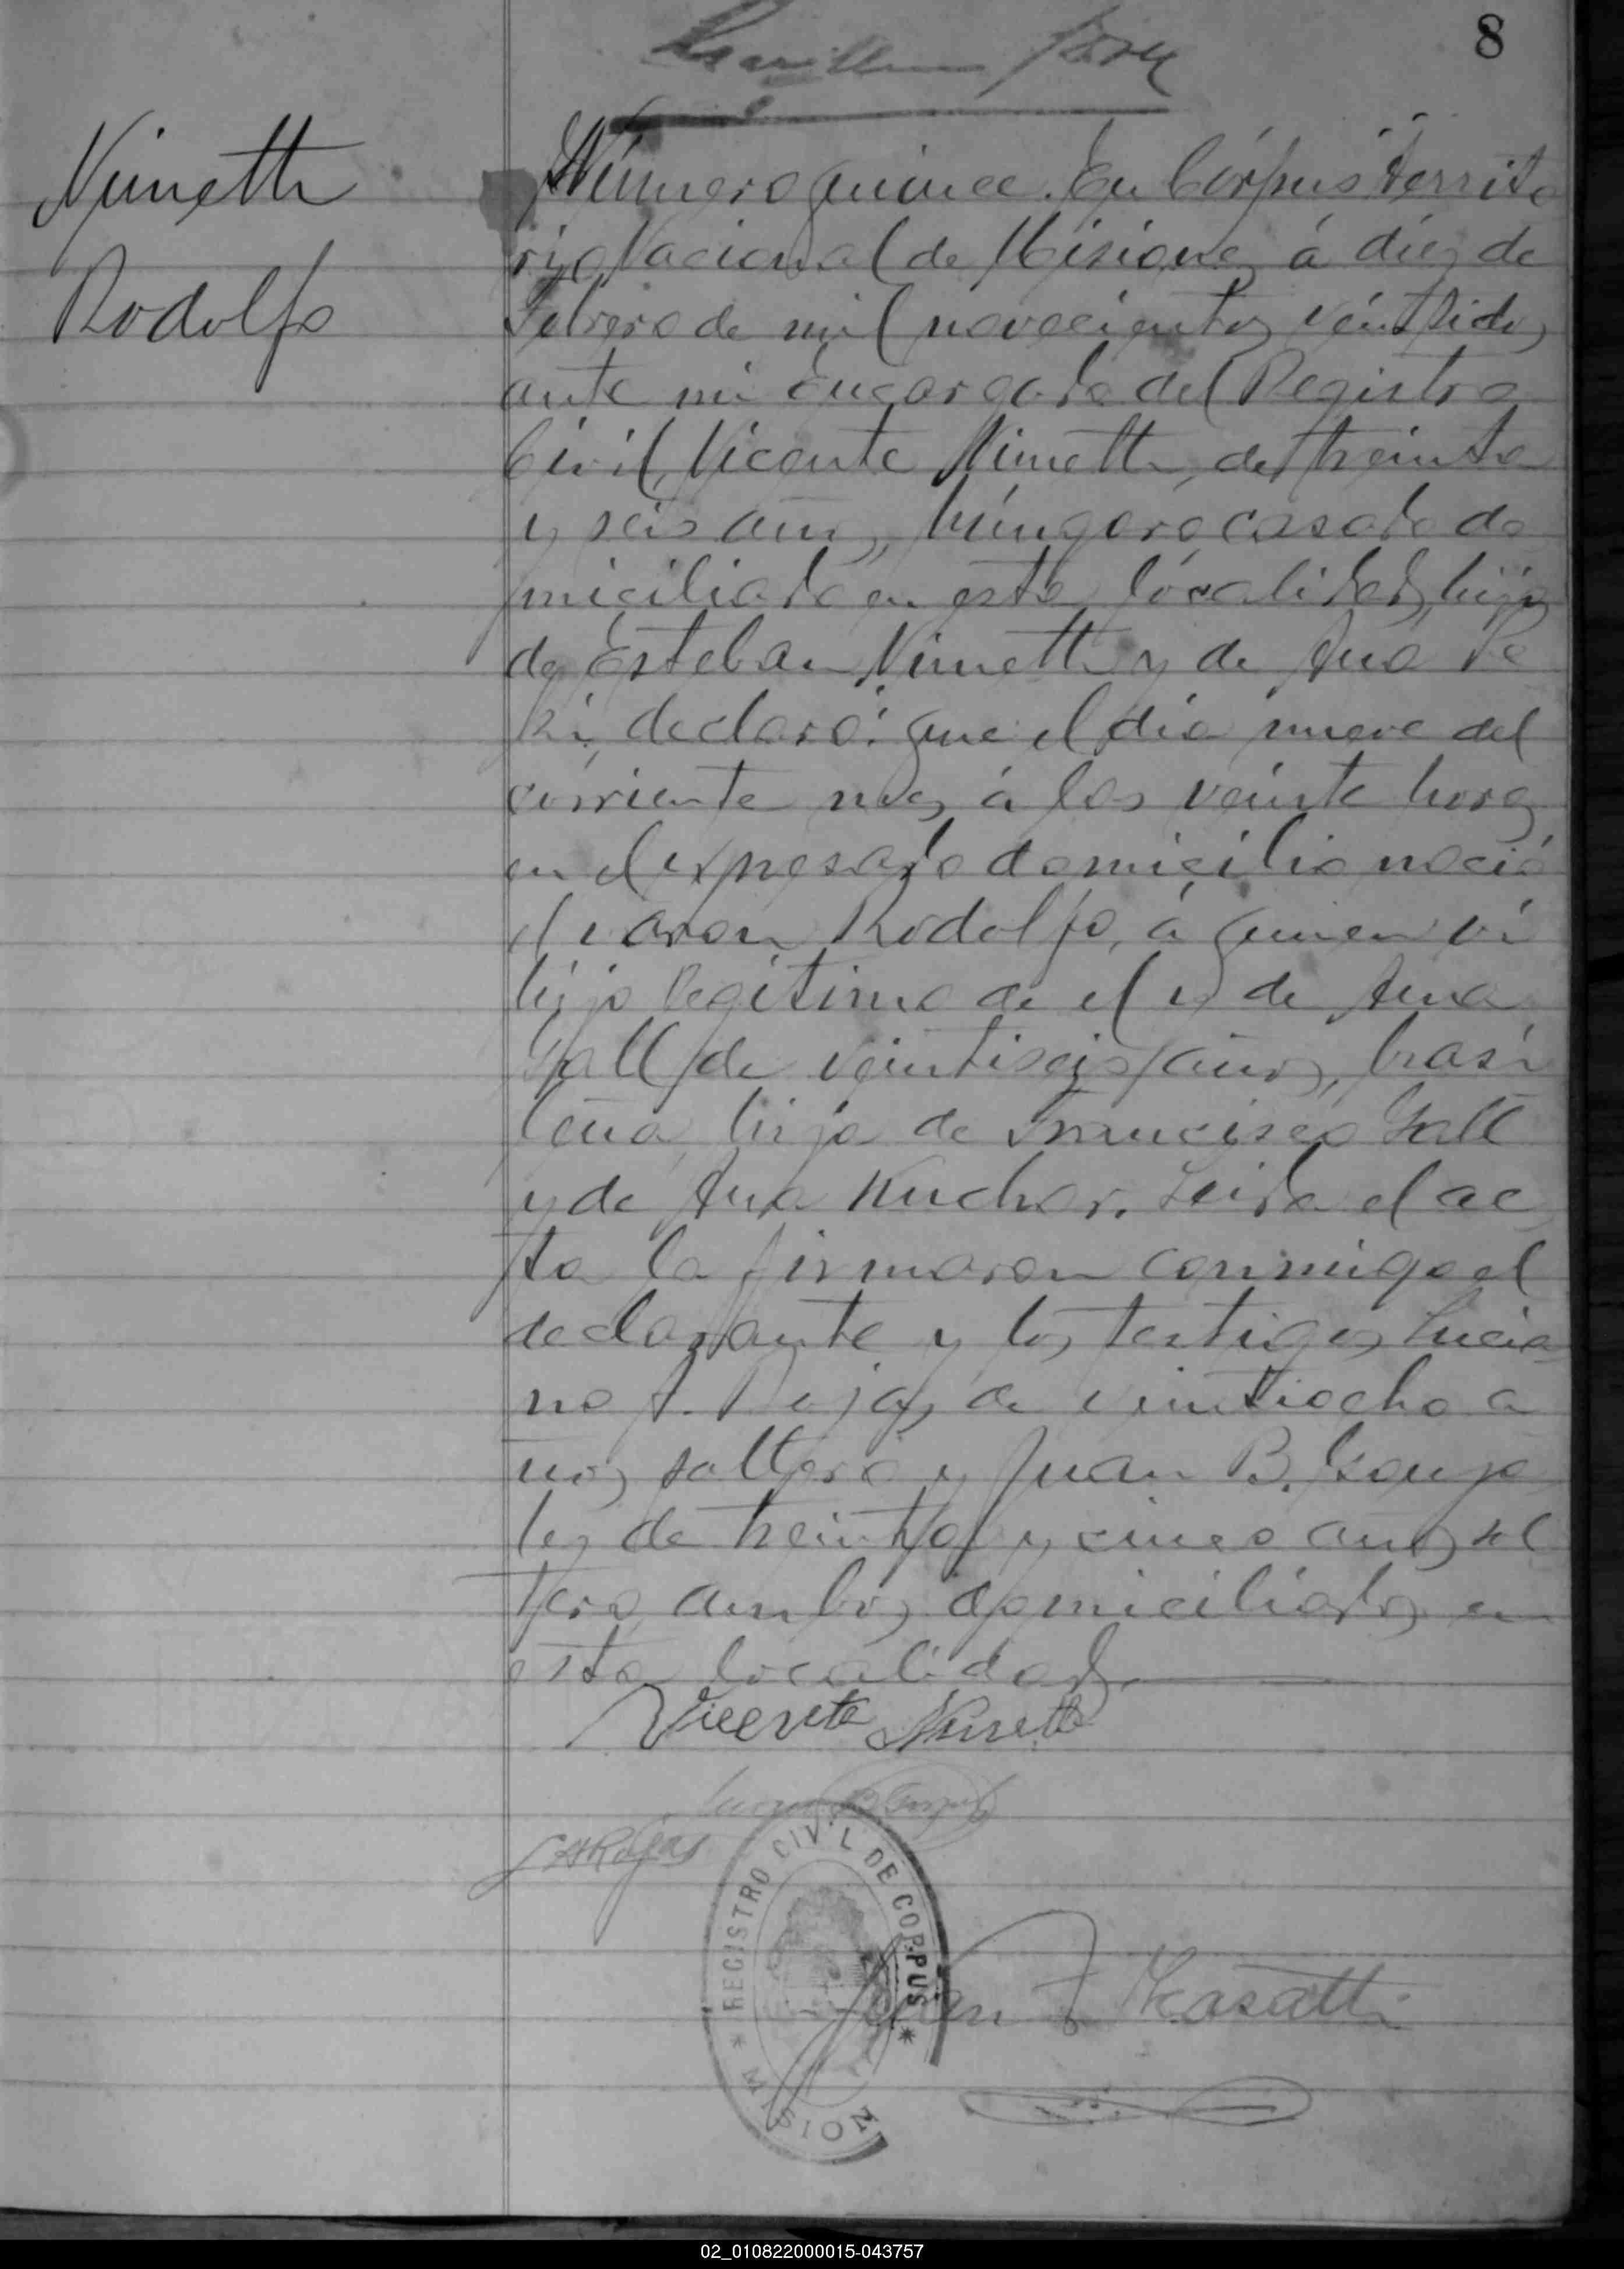 8
Nimeth
Rodolfo
Número quince. En Córpus Territo
rio Nacional de Misiones á diez de
Febrero de mil novecientos véintidos,
ante mi Encargado del Registro
Civil, Vicente Nimeth, de treinta
y seis años, húngaro casado do
miciliado en esta localidad, hijo
de Esteban Nimeth y de Ana Pe
ki, declaró: que el día nueve del
corriente mes á las veinte horas
en el expresado domicilio nació
el varon Rodolfo, á quien ví
hijo legítimo de el y de Ana
Gall de veintiseis años, brasi
leña, hija de Francisco Gall
y de Ana Kuchar. Leida el ac
ta la firmaron conmigo el
declarante y los testigos Lucia
no A. Rojas, de veintiocho a
ños, soltero y Juan B. Gonza
les de treinta y cinco años, sol
tero, ambos domiciliados en
esta localidad.
Vicente Nimeth
Juan B Gonzales
L A Rojas
REGISTRO CIVIL DE CORPUS
* MISION *
Juan Kasatti
02_010822000015-043757